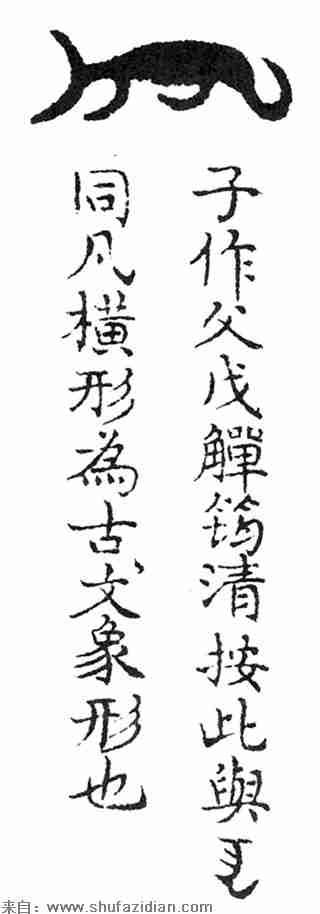 子作父戊觶筠清按此與
同凡橫形為古文象形也
来自：www.shufazidian.com